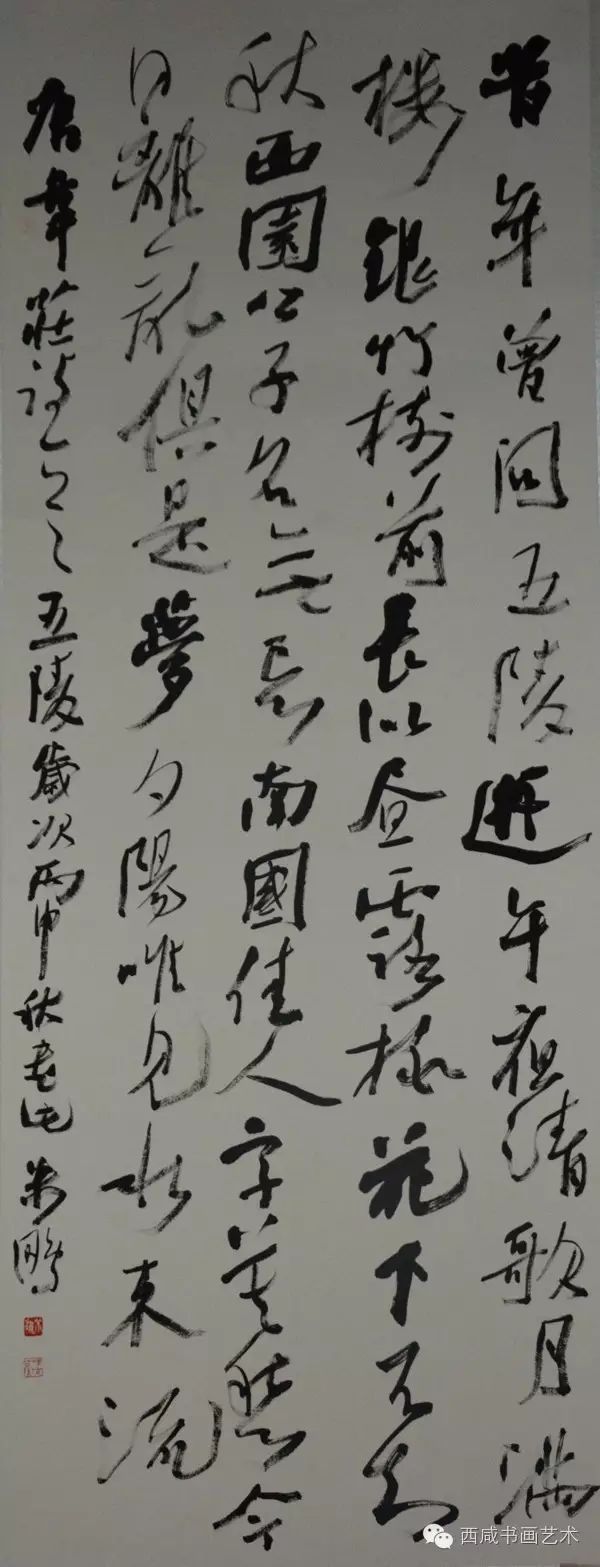 昔年曾问五陵游午夜清歌月满
楼银竹树前长似昼露桃花下不知
秋西园公子名无忌南国佳人字莫愁今
日离乱俱是梦夕阳唯见水东流
唐韦庄诗 五陵岁次丙申秋书 朱鹏
西咸书画艺术